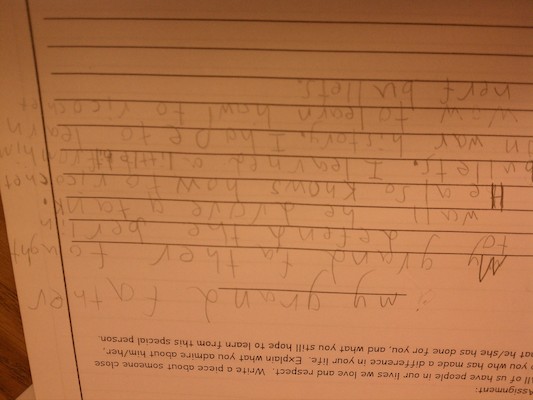 Assignment:
All of us have people in our lives we love and respect. Write a piece about someone close
to you who has made a difference in your life. Explain what you admire about him/her,
what he/she has done for you, and what you still hope to learn from this special person.
my grand father
My grand father fought
to defend the berlin
wall he drave a tank.
He also knows how to ricochet
bullets. I learned a little bit from him
on war history. I to learn
to learn how to ricochet
nerf bullets.